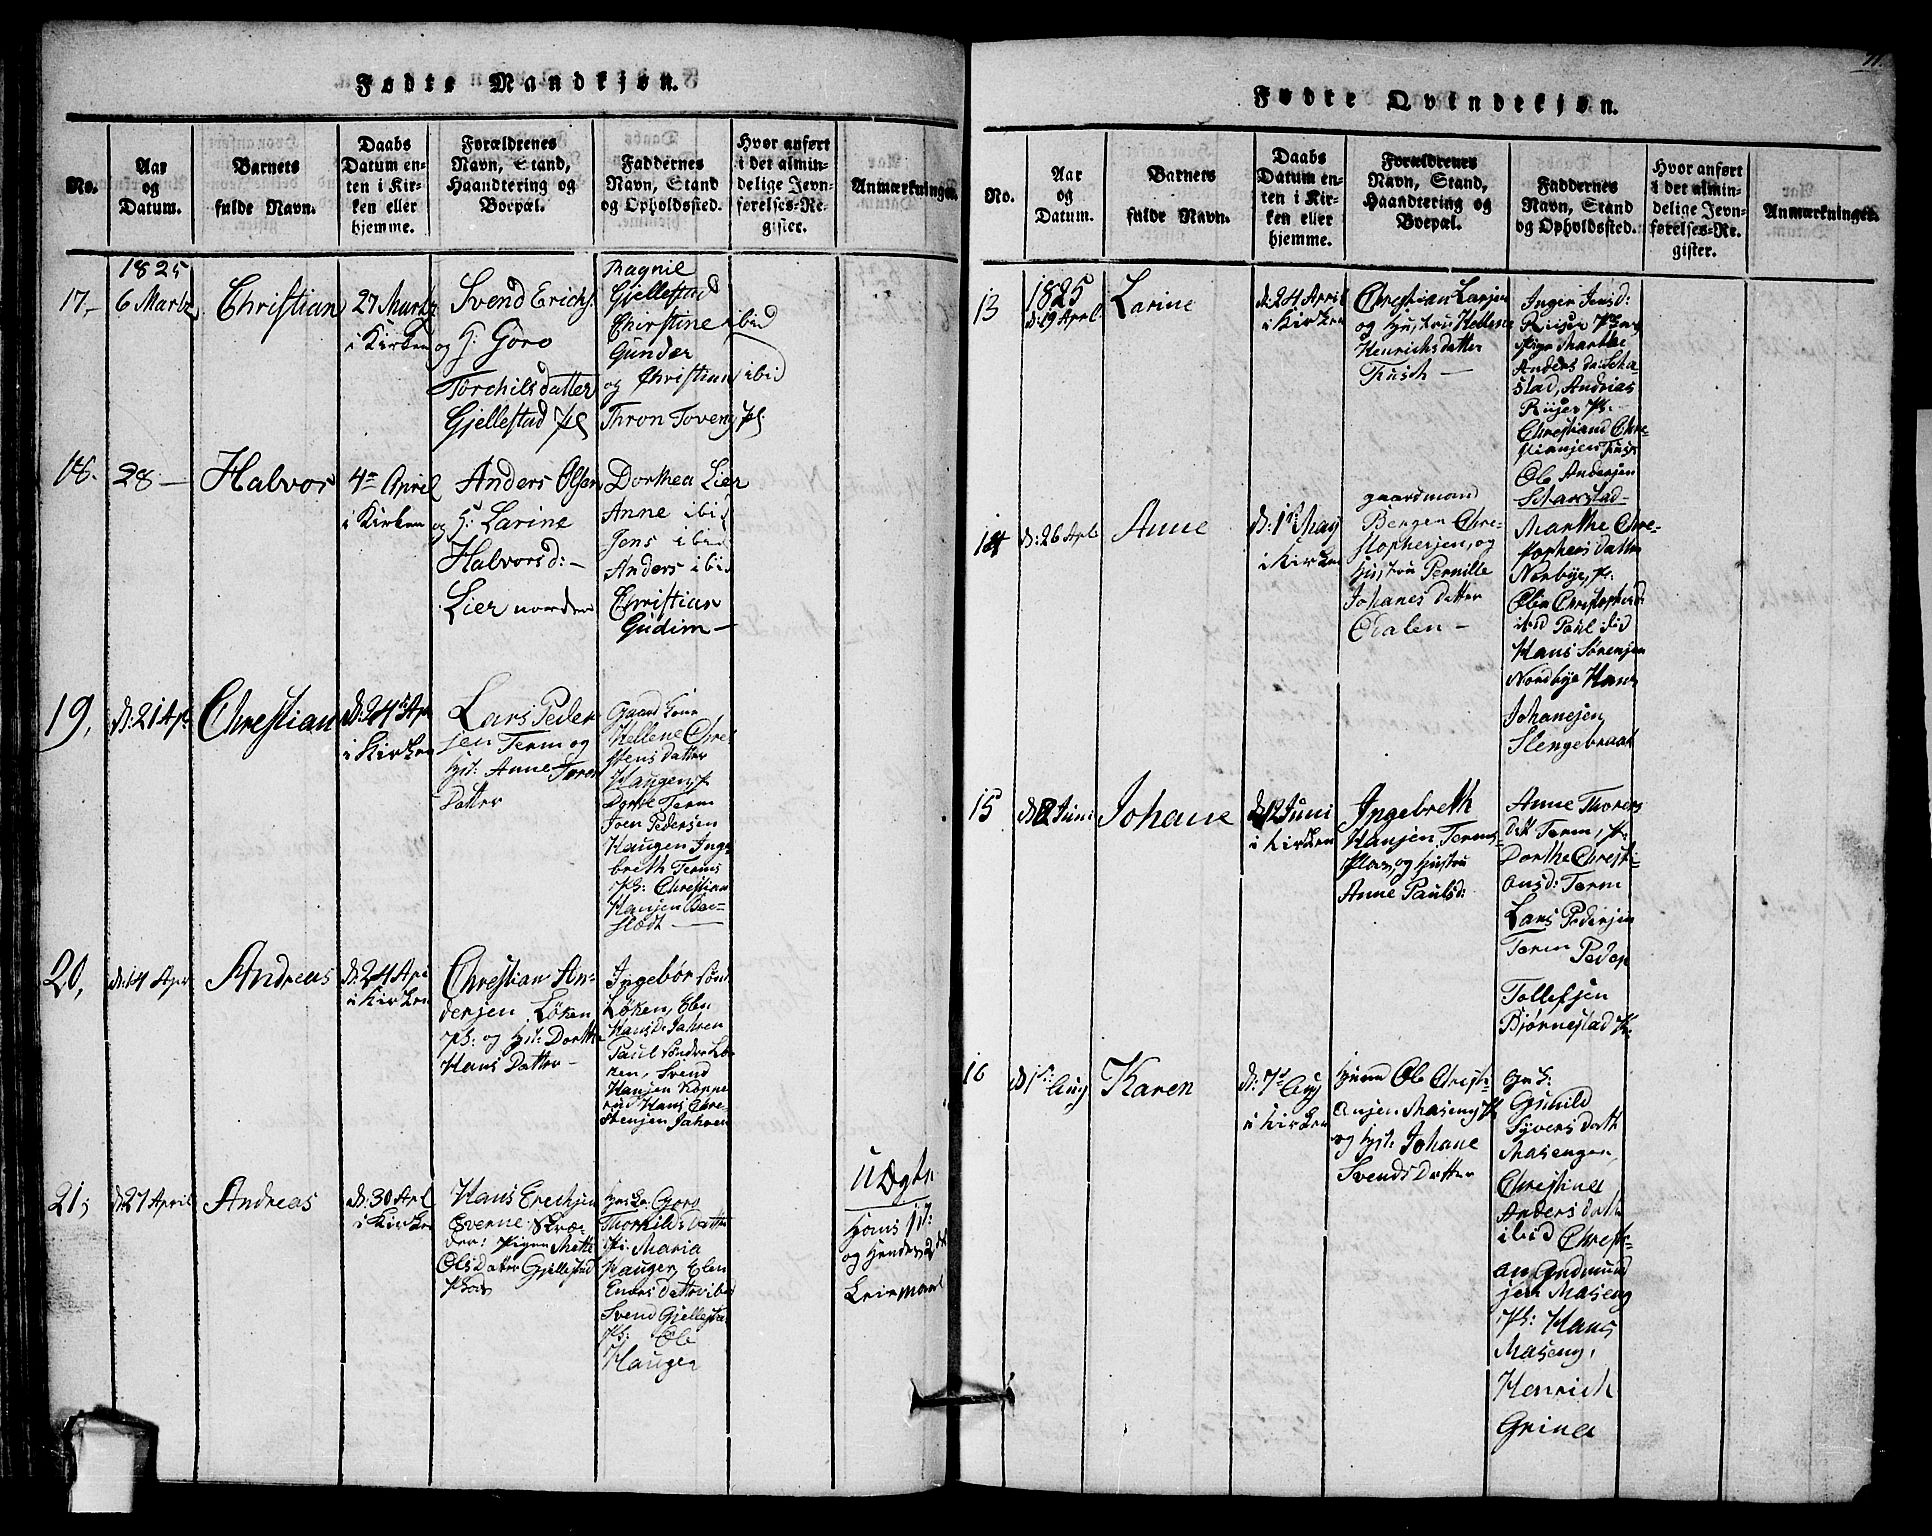 Fødte Mandkjøn.
No.
Aar
og
Datum.
Barnets
fulde Navn.
Daabs
Datum en-
ten i Kir-
ken eller
hjemme.
Forældrenes
Navn, Stand,
Haandtering og
Boepæl.
Faddernes
Navn, Stand
og Opholdssted.
Hvor anført
i det almin-
delige Jevn-
førelses-Re-
gister.
Anmærkninger.
1825
17-
6 Martz
Christian
27 Martz
i Kirken
Svend Erichs:
og H: Goro
Torchilsdatter
Gjellestad Pl
Ragnil
Gjellestad
Christine ibid
Gunder
og Christian ibid
Thron Toveng Pl:
18.
28 —
Halvor
4de April
i Kirken
Anders Olsen
og H: Larine
Halvorsd: -
Lier nordre
Dorthea Lier
Anne ibid
Jens ibid
Anders ibid
Christian
Gudim —
19,
d: 21 Ap:
Chrestian
d: 24de Apr
i Kirken
Lars Peder
sen Term og
Hst: Anne Tores
Datter
Gaard Kone
Hellene Chre
stens datter
Haugen,
Dorte Term
Joen Pedersen
Haugen Inge
breth Terms
Pl: Christian
Hansen Bae-
flødt —
20,
d: 14 Apr
Andreas
d: 24 Apri
i Kirken
Chrestian An-
dersen Løken
Pl: og Hst: Dorthe
Hans Datter -
Ingebor Sønd
Løken, Elen
Hansd: Jahren
Paul Søndre Lø-
ken, Svend
Hansen Koppe
rud Hans Chre-
stensen Jahren
21,
d: 27 April
Andreas
d: 30 Apl
i Kirken
Hans Erichsen
Sverne Skræ-
der: Pigen Mette
Olsdatter Gjellestad
Goro
Thorkilds Datter
Pi: Maria
Haugen, Elen
Enersdatter ibid
Svend Gjellestad
Pl: Ole
Haugen
U Ægte
Hans 1ste:
og Hendes 2det
Leiermaal
Fødte Qvindekjøn.
No.
Aar
og
Datum.
Barnets
fulde Navn.
Daabs
Datum en-
ten i Kir-
ken eller
hjemme.
Forældrenes
Navn, Stand,
Haandtering og
Boepæl.
Faddernes
Navn, Stand
og Opholdssted.
Hvor anført
i det almin-
delige Jevn-
førelses-Re-
gister.
Anmærkninger.
13
1825
d: 19 Aprl
Larine
d: 24 April
i Kirken
Chrestian Larsen
og Hustru Hellene
Henrichsdatter
Trusch —
Inger Jensd:
Riiser
Pige Marthe
Anders da: Scha-
stad, Andrias
Riiser Pl: -
Chrestiand Chre-
stiansen Trusc
Ole Andersen
Scharstad -
14
d: 26 Apl
Anne
d: 1ste May
i Kirken
gaardmand
Bergen Chre-
stophersen, og
Hustru Pernille
Johanes datter
Odalen -
Marthe Chre-
stophersdatter
Norbye, P:
Olia Christophersd:
ibid Paul ibid
Hans Sørensen
Nordbye Hans
Johanesen
Slengebraat
15
d: 2 Juni
Johane
d: 12 Juni
i Kirken
Ingebreth
Hansen Terms-
Plads, og Hustru
Anne Paulsd:
Anne Thorers
datt Term, P:
Dorthe Chresti-
ansd: Term
Lars Pedersen
Term Peder
Tollefsen
Bjørnestad Pl:
16
d: 1ste: Aug
Karen
d: 7de Aug
i Kirken
Huusm Ole Chresti-
ansen Maseng Pl
og Hst: Johane
Svends Datter
Gunild
Syvers Datt
Masengen,
Christine
Anders datt
ibid Chreste-
an Gudmund
sen Maseng
Pl: Hans
Maseng,
Henrich
Grine